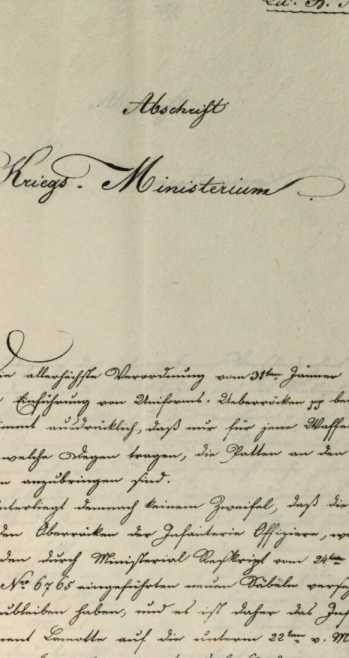 Abschrift
Kriegs-Ministerium.
Die allerhöchste Verordnung vom 31ten Jänner
Einführung von Uniforms-Ueberröcken pp be
stimmt ausdrücklich, daß nur für jene Waffen
welche Degen tragen, die Patten an den
anzubringen sind.
unterliegt demnach keinem Zweifel, daß die
den Oberröcken der Infanterie Offiziere, we
den durch Ministerial Reskript vom 24ten
No 6765 eingeführten neuen Säbeln verse
zubleiben haben, und es ist daher das Inf
ment Lamotte auf die unterm 22ten v. M